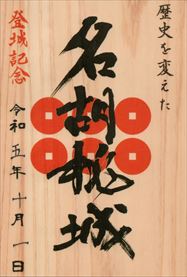 歴史を変えた
名胡桃城
登城記念
令和五年十月一日